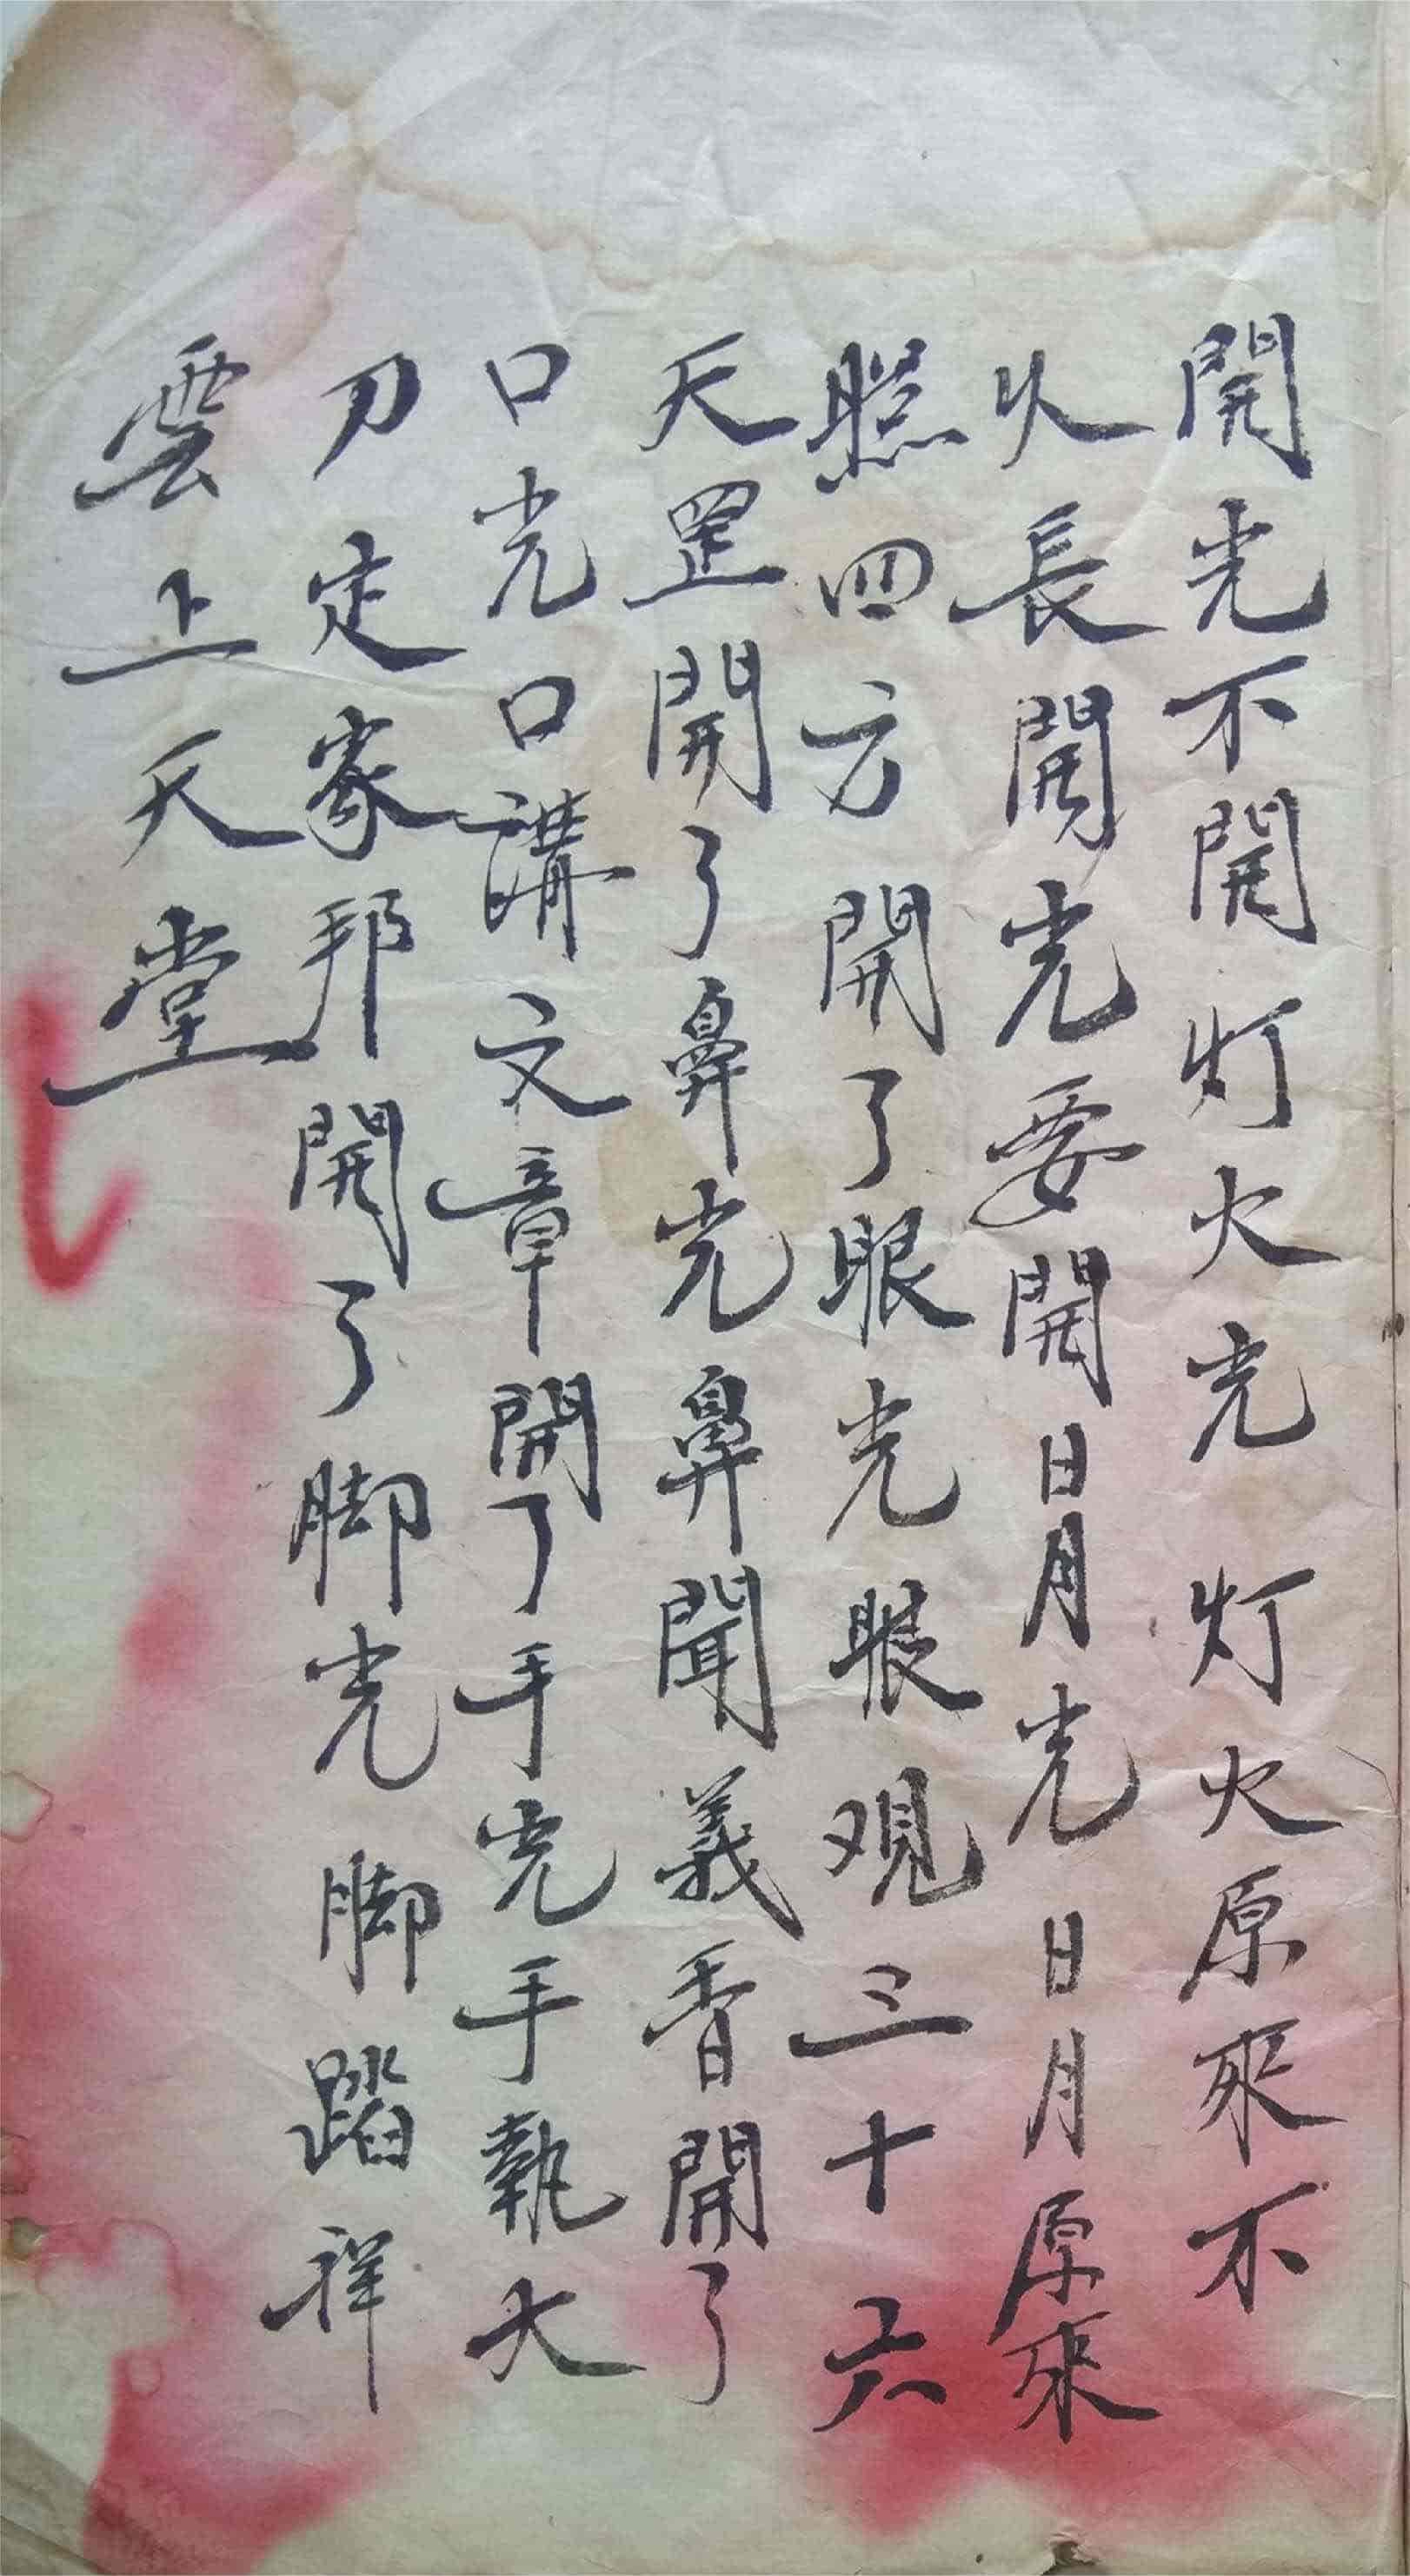 開光不開灯火光灯火原來不
火長開光要開日月光日月原來
照四方開了眼光眼观三十六
天罡開了鼻光鼻聞義香開了
口光口講文章開了手光手執大
刀定家邦開了脚光脚踏祥
雲上天堂